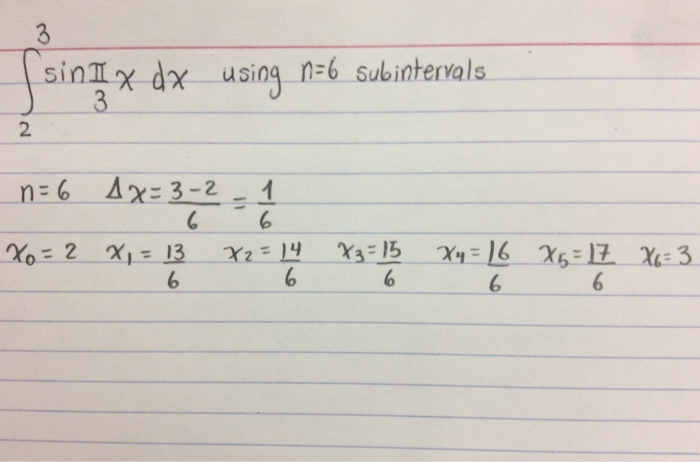 ∫₂³ sin π/3 x dx using n=6 subintervals
n=6 Δx= 3-2/6 = 1/6
x₀ = 2 x₁ = 13/6 x₂ = 14/6 x₃ = 15/6 x₄ = 16/6 x₅ = 17/6 x₆ = 3